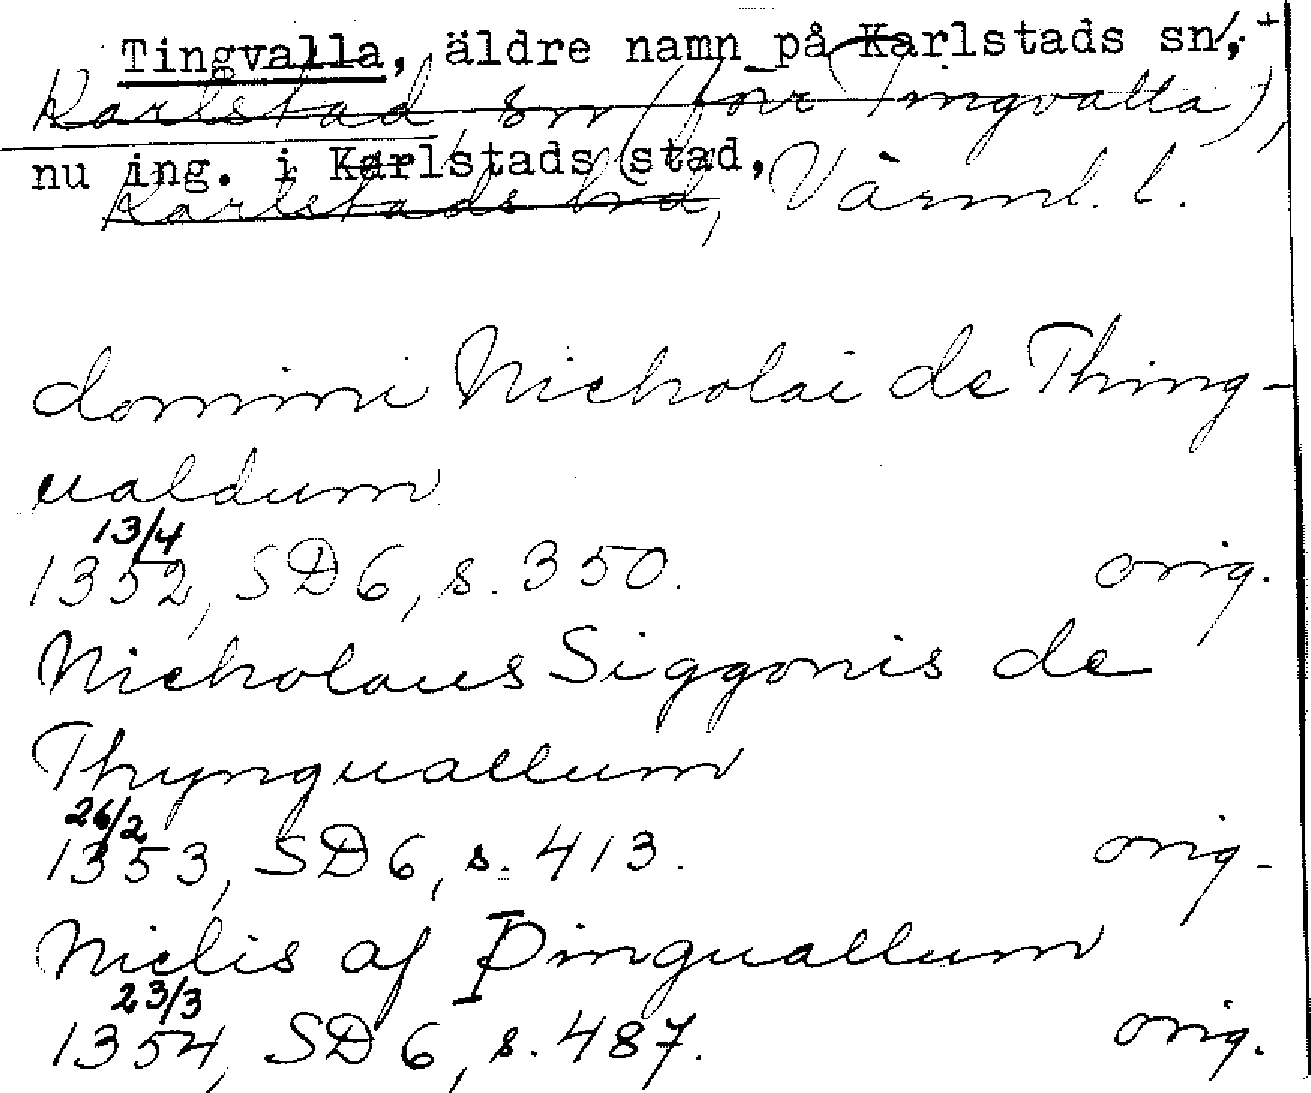 Tingvalla, äldre namn på Karlstads sn, +
Karlstad sn (förr Tingvalla),
nu ing. i Karlstads stad,
Karlstads hd, Värml. l.
domini Nicholai de Thing-
ualdum
13/4
1352, SD 6, s. 350. orig.
Nicholaus Siggonis de
Thynguallum
26/2
1353, SD 6, s. 413. orig.
Niclis af Þinguallum
23/3
1354, SD 6, s. 487. orig.